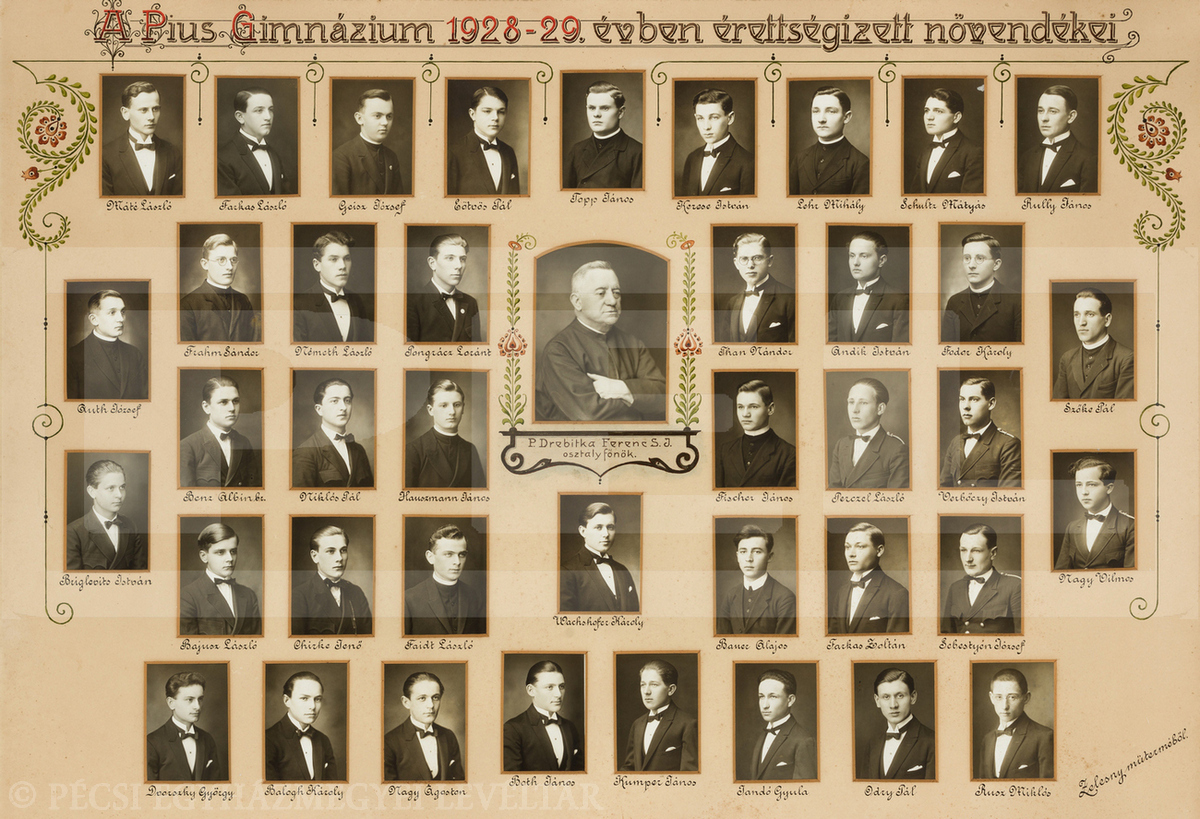 A Pius Gimnázium 1928-29. évben érettségizett növendékei
Máté László
Farkas László
Geisz József
Eötvös Pál
Topp János
Körese István
Lehr Mihály
Schultz Mátyás
Rully János
Frahm Sándor
Németh László
Pongrácz Loránt
Than Nándor
Andik István
Fodor Károly
Auth József
Szőke Pál
P. Drebitka Ferenc S.J.
osztályfőnök.
Benz Albin br.
Miklós Pál
Hauszmann János
Fischer János
Perczel László
Verbőczy István
Briglevits István
Nagy Vilmos
Bajusz László
Chirke Jenő
Faidt László
Wachshofer Károly
Bauer Alajos
Farkas Zoltán
Sebestyén József
Dvorszky György
Balogh Károly
Nagy Ágoston
Both János
Kumper János
Jandó Gyula
Ódry Pál
Rusz Miklós
Zelesny, műterméből.
© PÉCSI EGYHÁZMEGYEI LEVÉLTÁR